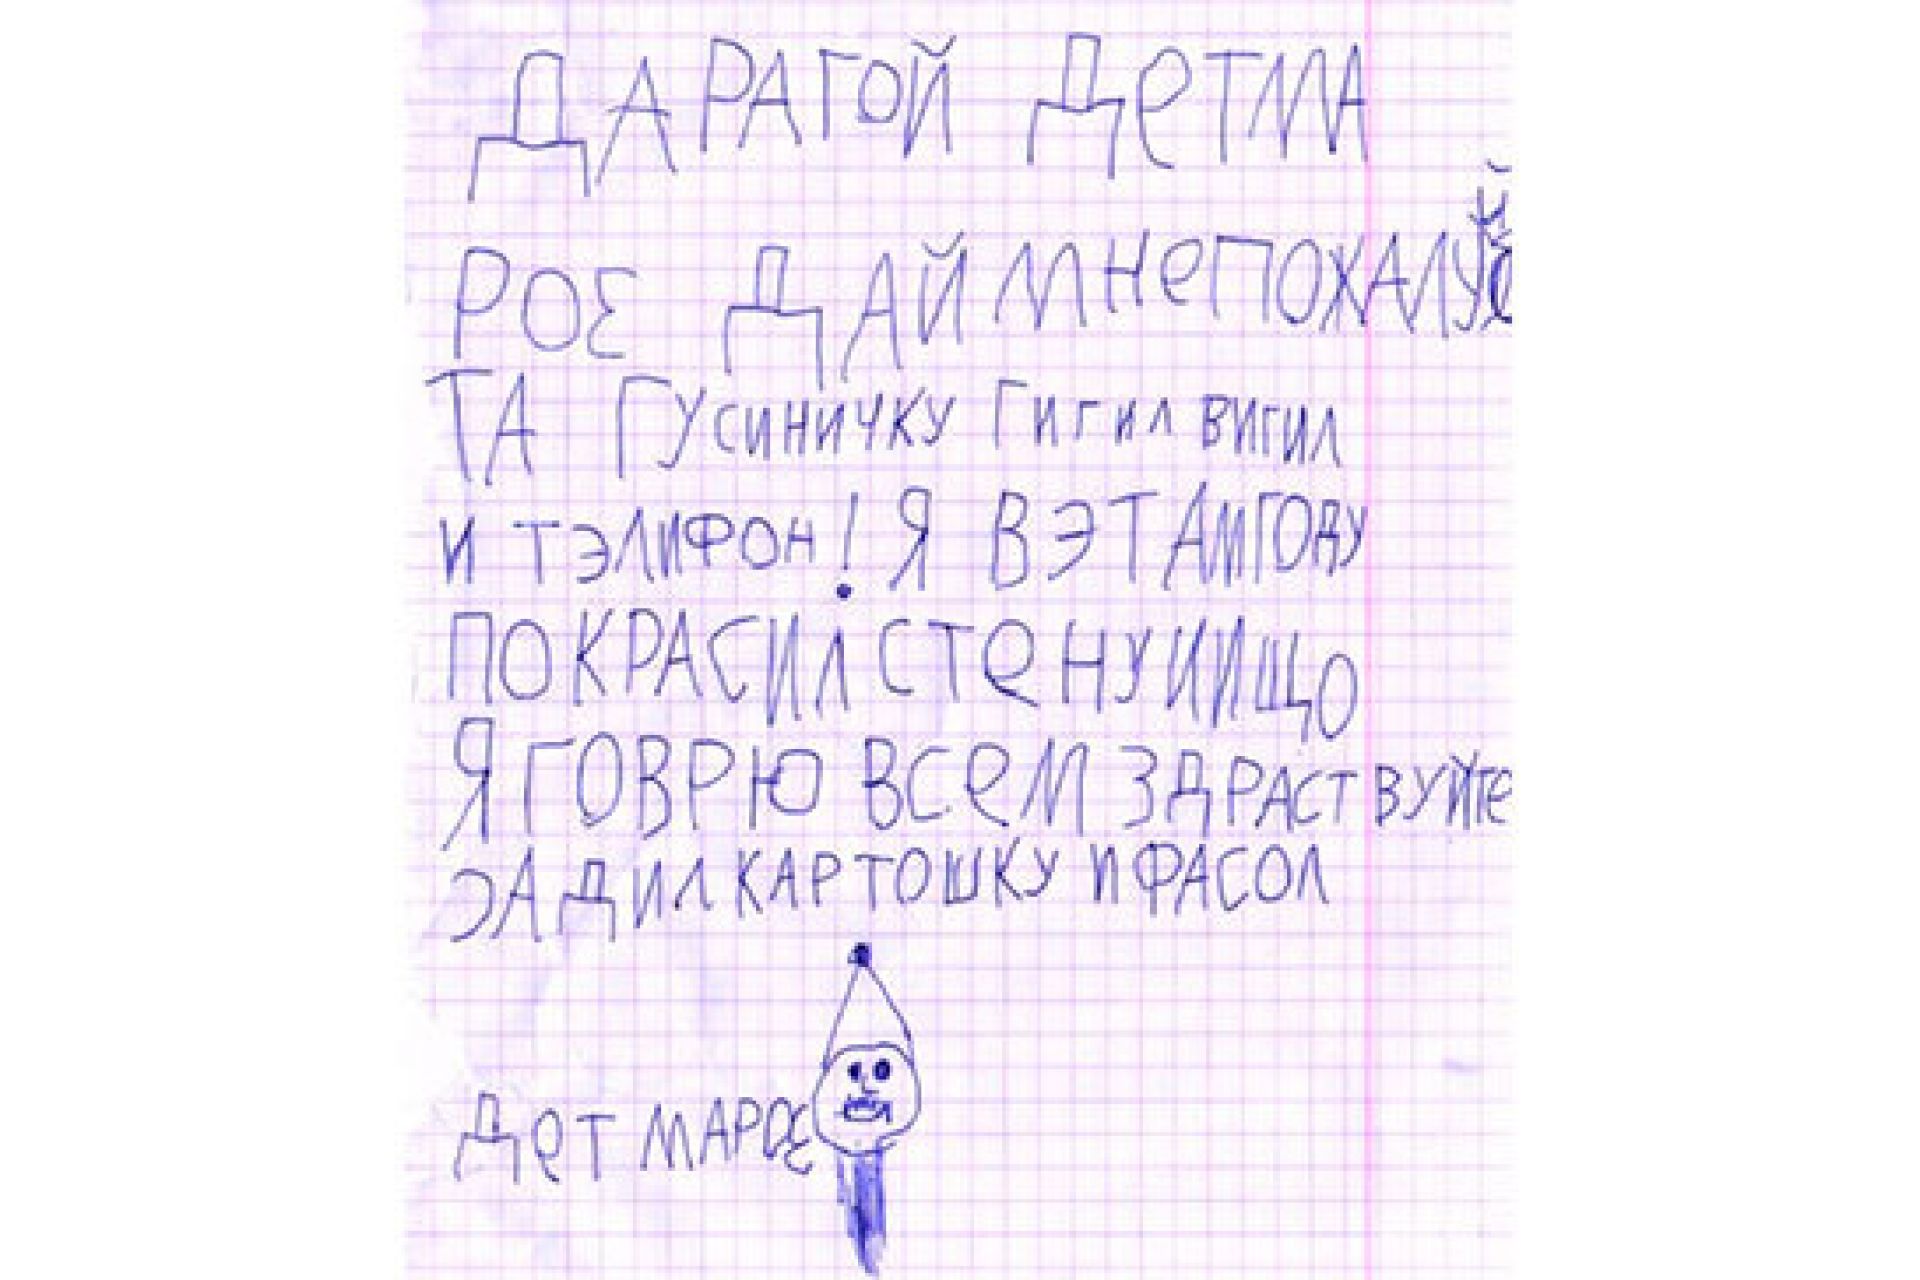 ДАРАГОЙ ДЕТМА
РОЗ ДАЙ МНЕПОХАЛУЙ
ТА ГУСИНИЧКУ ГИГИЛ ВИГИЛ
И ТЭЛИФОН! Я В ЭТАМГОДУ
ПОКРАСИЛ СТЕНУ И ИЩО
Я ГОВРЮ ВСЕМ ЗДРАСТВУЙТЕ
ЗАДИЛ КАРТОШКУ И ФАСОЛ
ДЕТ МАРОЗ